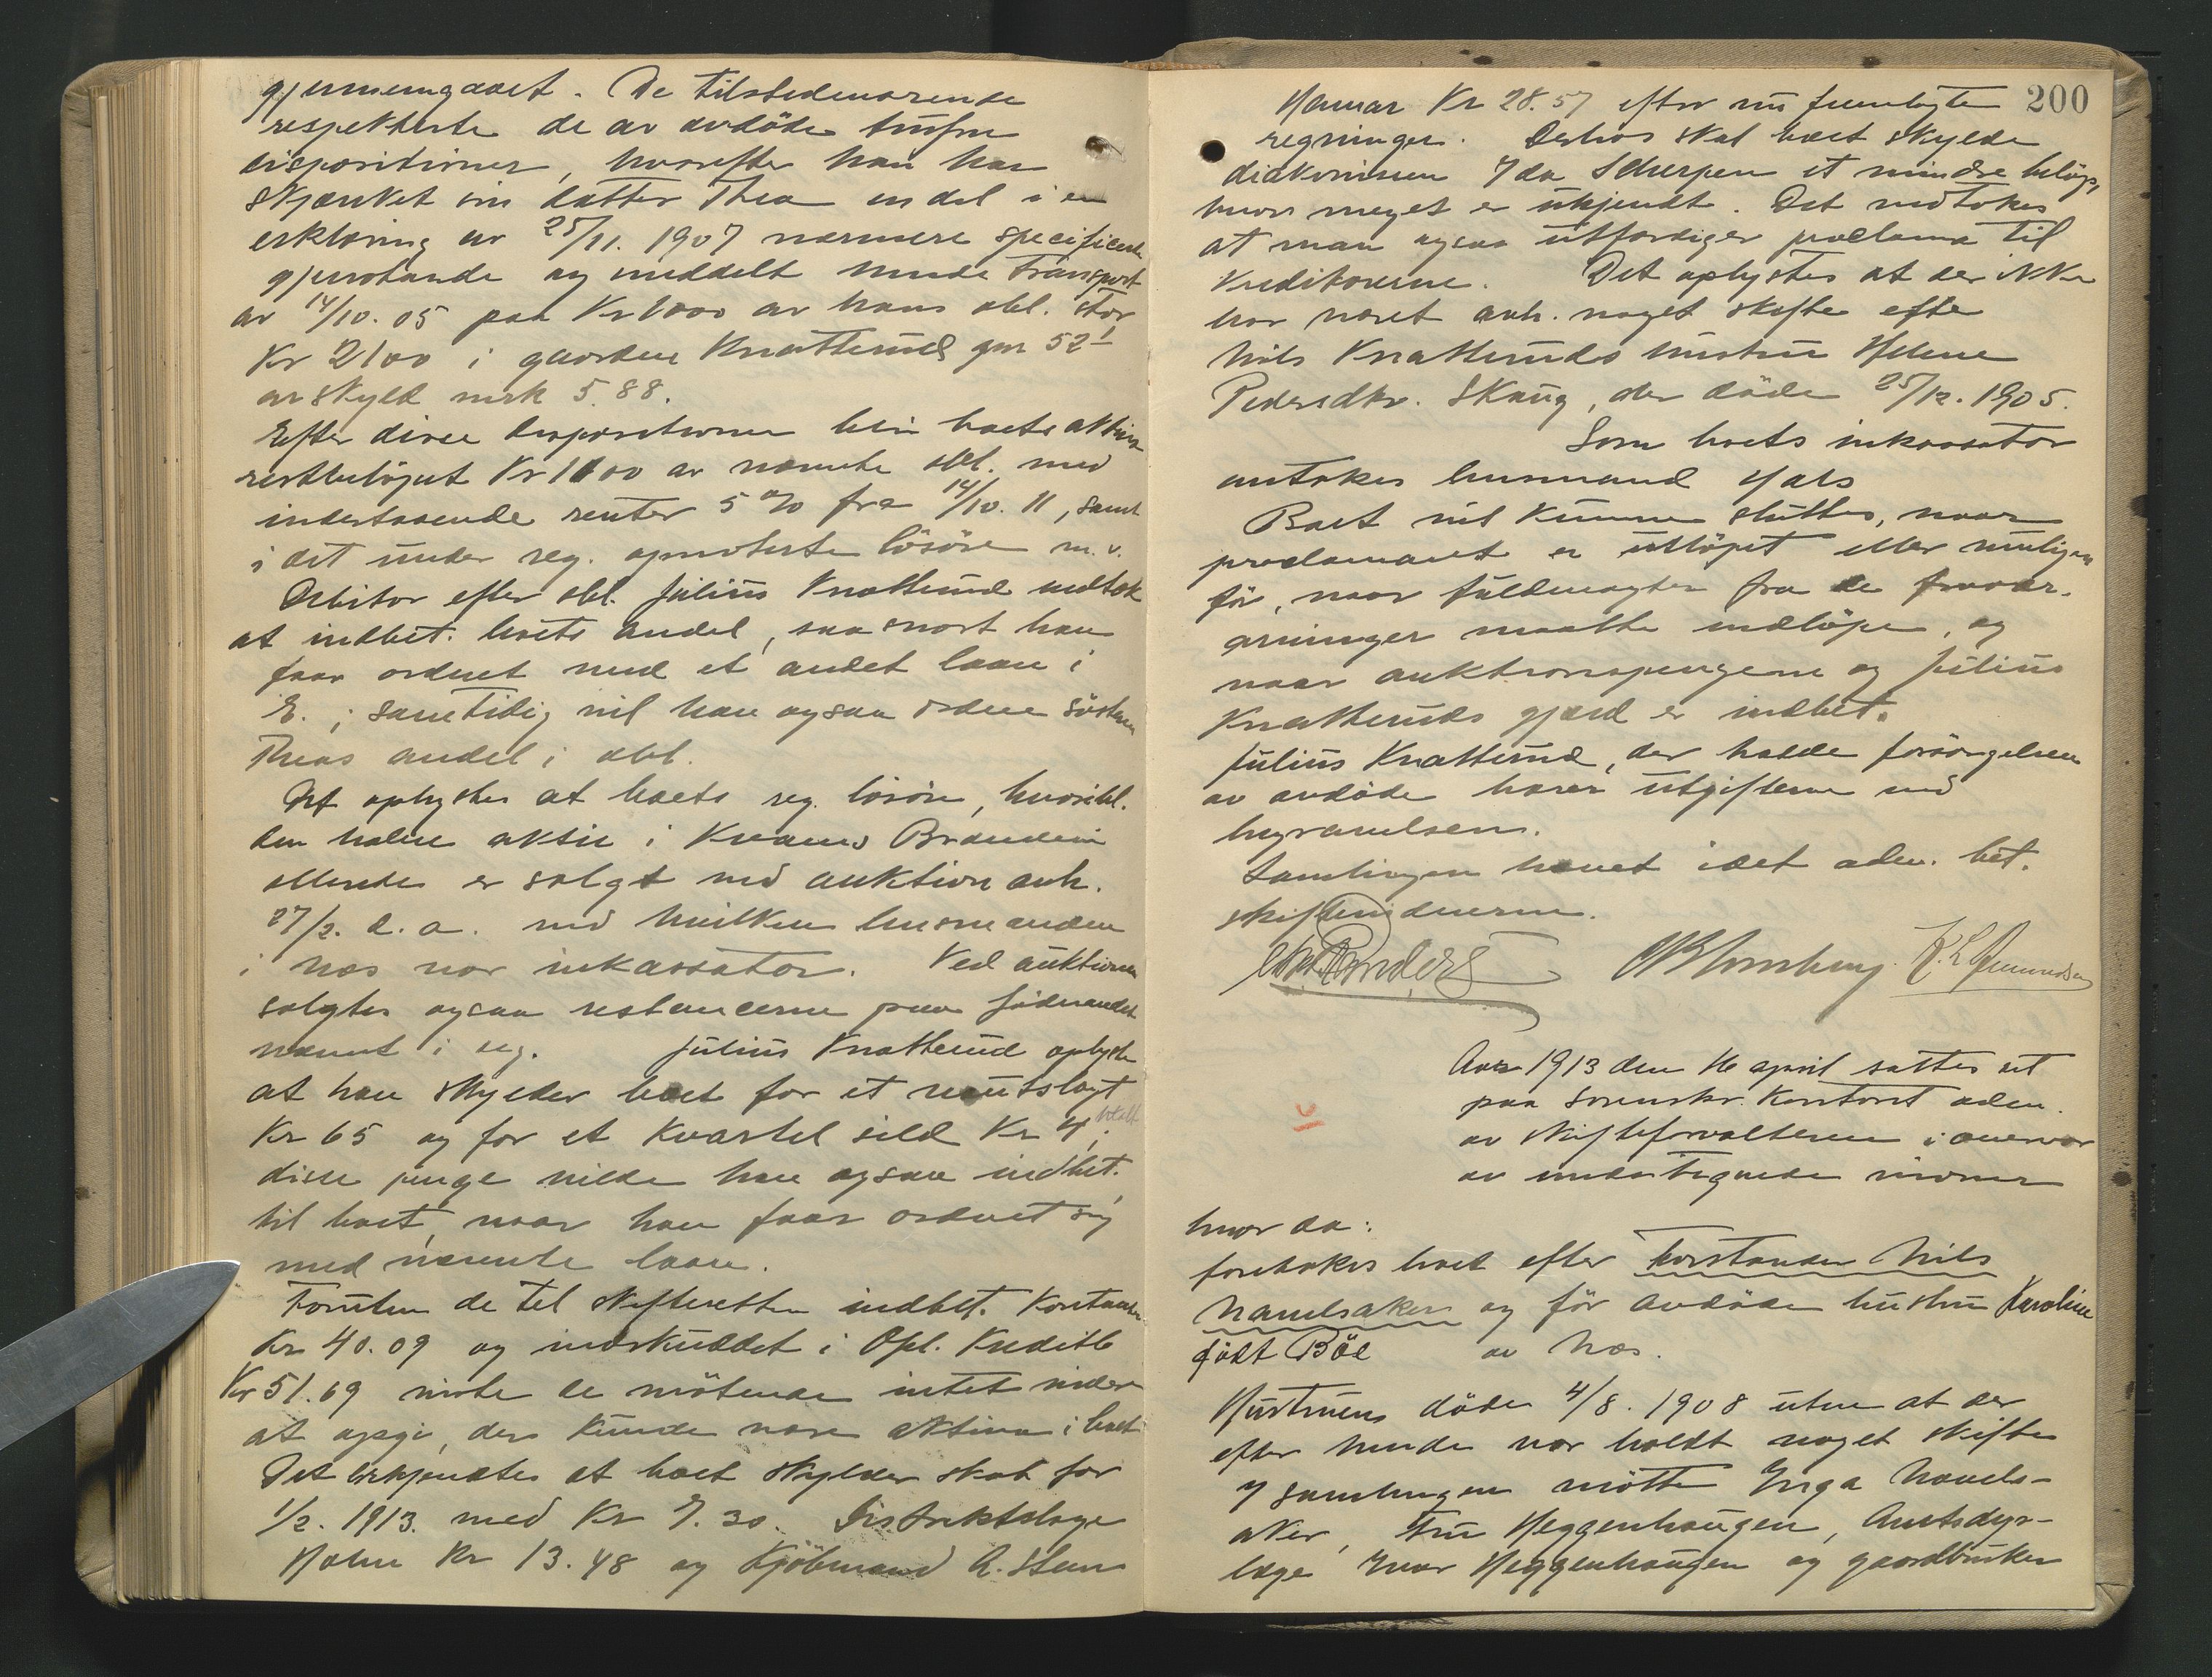 gjennemgaaet. De tilstedeværende
respekterte de av avdöde trufne
dispositioner, hvorefter han har
skjænket sin datter Thea en del i en
erklæring av 25/11. 1907 nærmere specificerte
gjenstande og meddelt hende transport
av 14/10. 05 paa Kr 1000 av hans obl. stor
Kr 2100 i gaarden Knatterud gn 52 1
av skyld mrk 5.88.
Efter disse dispositioner blir boets aktiva
restbelöpet Kr 1100 av nævnte obl. med
indestaaende renter 5 % fra 14/10. 11, samt
i det under reg. opnoterte lösöre m. v.
Debitor efter obl. Julius Knatterud vedtok
at indbet. boets andel, saa snart han
faar ordnet med et andet laan i
E.; samtidig vil han ogsaa ordne söster
Theas andel i obl.
Det oplystes at boets reg. lösöre, hvoribl.
den halve aktie i Kvams Brænderi
allerede er solgt ved auktion avh.
27/2. d. a. ved hvilken lensmanden
i Næs var inkassator. Ved auktionen
solgtes ogsaa restancerne paa föderaadet
nævnt i reg. Julius Knatterud oplyste
at han skylder boet for et nautslagt
Kr 65 og for et kvartel sild Kr 4;
disse penge vilde han ogsaa indbet.
til boet, naar han faar ordnet sig
med nævnte laan.
Foruten de til skifteretten indbet. kontanter
Kr 40.09 og indskuddet i Opl. Kreditb
Kr 51.69 visste de mötende intet videre
at opgi, der kunde være aktiva i boet
Det erkjendtes at boet skylder skat for
1/2. 1913. med Kr 7.30. Distriktslæge
Holm Kr 13.48 og Kjöbmand A. Steen
200
Hamar Kr 28.57 efter nu fremlagte
regninger. Derhos skal boet skylde
diakonissen Ida Scherpen et mindre belöp,
hvor meget er ukjendt. Det vedtokes
at man ogsaa utfærdiger proclama til
kreditorerne. Det oplystes at der ikke
har været avh. noget skifte efter
Nils Knatteruds hustru Helene
Pedersdtr. Skaug, der döde 25/12. 1905.
Som boets inkassator
antokes lensmand Hals
Boet vil kunne sluttes, naar
proclamaet er utlöpet eller muligens
för, naar fuldmagter fra de fravær.
arvinger maatte indlöpe, og
naar auktionspengene og Julius
Knatteruds gjæld er indbet.
Julius Knatterud, der hadde forsörgelsen
av avdöde bærer utgifterne ved
begravelsen.
Samlingen hævet idet adm. bet.
skiftevidnerne.
Aar 1913 den 16 april sattes ret
paa Sorenskr. kontoret adm.
av skifteforvalteren i overvær
av undertegnede vidner
hvor da:
foretokes boet efter Forstander Nils
Navelsaker og för avdöde hustru Karoline
födt Böe av Næs.
Hustruen döde 4/8. 1908 uten at der
efter hende var holdt noget skifte
I samlingen mötte Inga Navels-
aker, Fru Heggenhaugen, Amtsdyr-
læge Ivar Heggenhaugen og gaardbruker